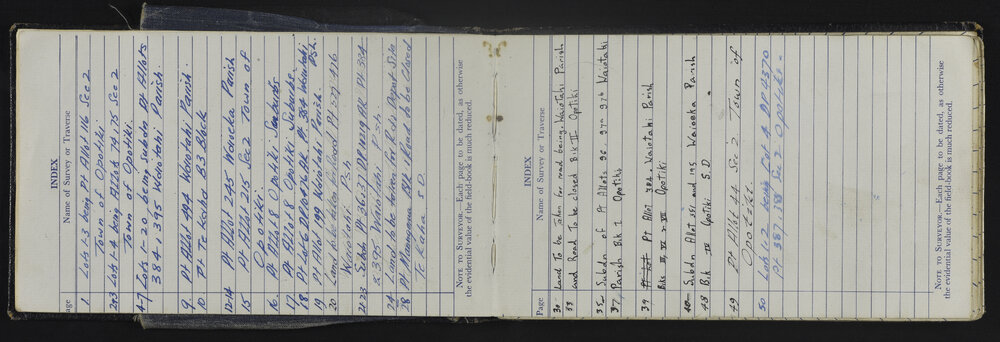 INDEX
Page Name of Survey or Traverse
1 Lots 1-3 being Pt Allot 116 Sec 2
Town of Opotiki
2&3 Lots 1-4 being Allots 74, 75 Sec 2
Town of Opotiki.
4-7 Lots 1-20 being Subdn Pt Allots
384, 395 Waiotahi Parish.
9 Pt Allot 494 Waiotahi Parish.
10 Pt Te Kaha B3 Block
12-14 Pt Allot 245 Waioeka Parish
15 Pt Allot 215 Sec 2 Town of
Opotiki.
16 Pt Allot 8 Opotiki Suburbs
17 Pt Allot 8 Opotiki Suburbs
18 Pt Lot 2 Pt 384 Waiotahi
Psh.
19 Pt Allot 99 Waiotahi Parish
20 Land Pt 577, 476
Waiotahi Psh
21-23 Subdn Pt 36, 37 Pt 394
& 395 Waiotahi Psh
24 Land to be taken for P.O. Depot Site
28 Pt Blk & Road to be Closed
NOTE TO SURVEYOR.—Each page to be dated, as otherwise
the evidential value of the field-book is much reduced.
INDEX
Page Name of Survey or Traverse
30 Land to be Taken for road being, Waiotahi Parish
33 and Road To be closed Blk II Opotiki
35 Subdn of Pt Allots 96 97A 97B Waiotahi
37 Parish Blk 1 Opotiki
39 Pt Allot 384, Waiotahi Parish
Blks III, IV & VII Opotiki
40 Subdn Allot 351 and 195 Waioeka Parish
48 Blk IV Opotiki S.D.
49 Pt Allot 44 Sec 2 Town of
Opotiki.
50 Lots 1-2 being Lot 2 DP 4370
Pt 387, 188 Sec 2 Opotiki.
NOTE TO SURVEYOR.—Each page to be dated, as otherwise
the evidential value of the field-book is much reduced.